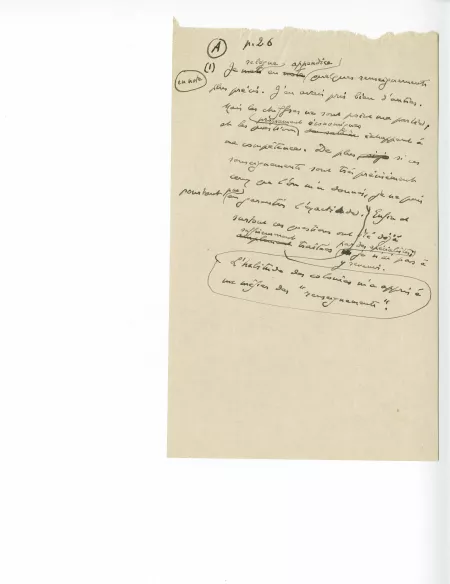 (A) p. 26
relègue appendice
(1) Je mets en note quelques renseignements
en note
plus précis. J'en avais pris bien d'autres.
Mais les chiffres ne sont point ma partie,
proprement économiques
et les questions échappent à
ma compétence. De plus si ces
renseignements sont très précisément
ceux que l'on m'a donnés, je ne puis
pourtant pas en garantir l'exactitude. Enfin et
surtout ces questions ont été déjà
suffisamment traitées par des spécialistes
je n'ai pas à
y revenir.
L'habitude des colonies m'a appris à
me méfier des "renseignements".